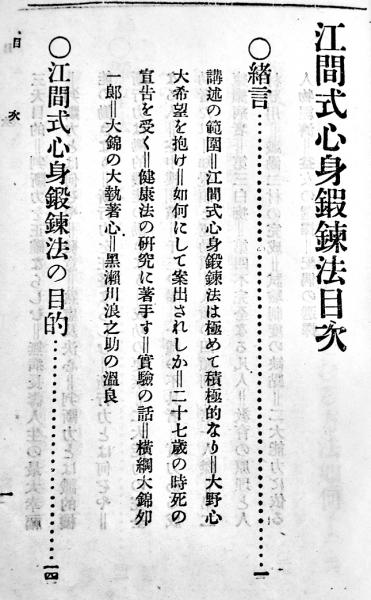 江間式心身鍛鍊法目次
〇緒言…………………………一
講述の範圍‖江間式心身鍛鍊法は極めて積極的なり‖大野心
大希望を抱け‖如何にして案出されしか‖二十七歲の時死の
宣吿を受く‖健康法の硏究に著手す‖實驗の話‖橫綱大錦卯
一郞‖大錦の大執著心‖黑瀨川浪之助の溫良
〇江間式心身鍛鍊法の目的…………………………一四
目次
一